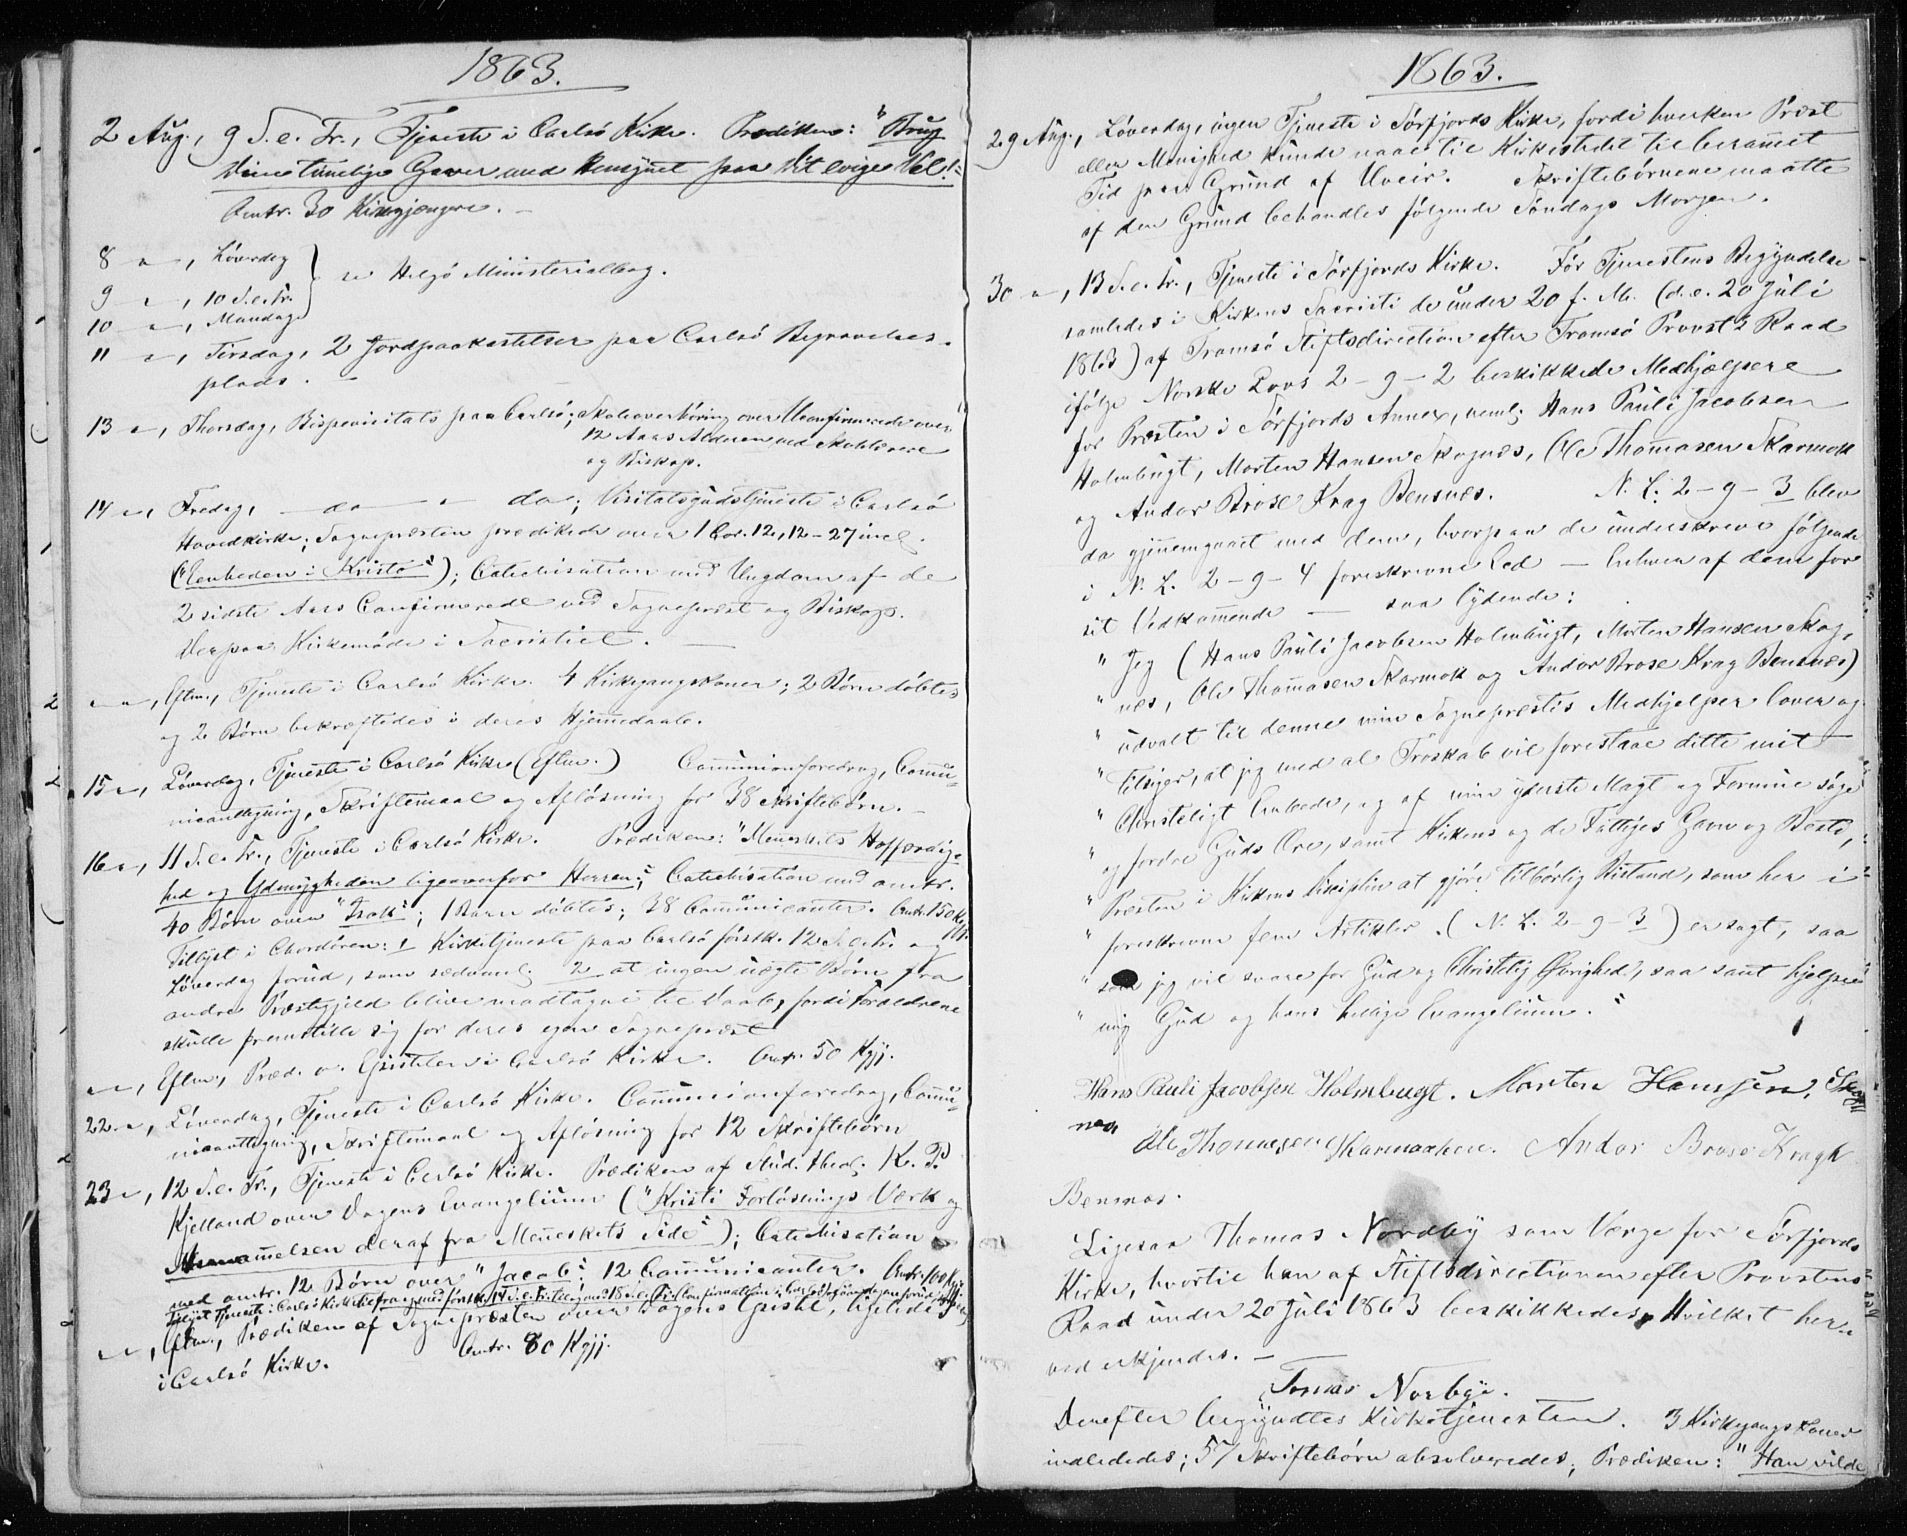 1863.
2 Aug., 9 S. e. Tr., Tjeneste i Carlsö Kirke. Prædiken: "Brug
Dine timelige Gaver med Hensynet paa Dit evige Vel!"
Omtr. 30 Kirkegjængere. –
8 – " –, Löverdag
9 – " –, 10 S. e. Tr.
10 – " –, Mandag
Helgö Ministerialbog.
11 – " –, Tirsdag, 2 Jordpaakastelser paa Carlsö Begravelses-
plads. –
13 – " –, Thorsdag, Bispevisitats paa Carlsö; Skoleoverhöring over Uconfirmerede over
12 Aars Alderen ved Skolelærere
og Biskop.
14 – " –, Fredag, – do – " – do; Visitatsgudstjeneste i Carlsö
Hovedkirke; Sognepræsten prædikede over 1 Cor. 12, 12–27 incl.
(Eenheden i Kristo"); Catechisation med Ungdom af de
2 sidste Aars Confirmerede ved Sognepræst og Biskop.
Derpaa Kirkemöde i Sacristiet. –
– " –, Eftm., Tjeneste i Carlsö Kirke. 4 Kirkegangskoner; 2 Börn döbtes
og 2 Börn bekræftedes i deres Hjemmedaab.
15 – " –, Löverdag, Tjeneste i Carlsö Kirke (Eftm.) Communionforedrag, Commu-
nicantlegning, Skriftemaal og Aflösning for 38 Skriftebörn. –
16 – " –, 11 S. e. Tr., Tjeneste i Carlsö Kirke. Prædiken: "Menneskets Hoffærdig-
hed og Ydmygheden ligeoverfor Herren"; Catechisation med omtr.
40 Börn over "Isak"; 1 Barn döbtes; 38 Communicanter. Omtr. 150 Kgjj.
Tillyst i Chordören: 1 Kirketjeneste paa Carlsö förstk. 12 S. e. Tr. og
Löverdag forud, som sædvanl; 2 at ingen uægte Börn fra
andre Præstegjeld blive modtagne til Daab, fordi Forældrene
skulle fremstille sig for deres egen Sognepræst.
– " –, Eftm., Præd. o. Epistelen i Carlsö Kirke. Omtr. 50 Kgjj.
22 – " –, Löverdag, Tjeneste i Carlsö Kirke. Communionforedrag, Commu-
nicantlegning, Skriftemaal og Aflösning for 12 Skriftebörn
23 – " –, 12 S. e. Tr., Tjeneste i Carlsö Kirke. Prædiken af Stud. theol. K. P.
Kjelland over Dagens Evangelium ("Kristi Forlösnings Værk og
Annammelsen deraf fra Menneskets Side"); Catechisation
med omtr. 12 Börn over "Jacob". 12 Communicanter. Omtr. 100 Kgjj.
Tillyst Tjeneste i Carlsö Kirke
– " –, Eftm., Prædiken af Sognepræsten over Dagens Epistel, ligeledes
i Carlsö Kirke. Omtr. 80 Kgjj.
1863.
29 Aug., Löverdag, ingen Tjeneste i Sörfjords Kirke, fordi hverken Præst
eller Menighed kunde naae til Kirkestedet til berammet
Tid paa Grund af Uveir. Skriftebörnene maatte
af den Grund behandles fölgende Söndags Morgen.
30 – " –, 13 S. e. Tr., Tjeneste i Sörfjords Kirke. Før Tjenestens Begyndelse
samledes i Kirkens Sacristi de under 20 f. M. (d. e. 20 Juli
1863) af Tromsö Stiftsdirection efter Tromsö Provsts Raad
ifölge Norske Lovs 2–9–2 beskikkede Medhjælpere
for Præsten i Sörfjords Annex, nemlig Hans Pauli Jacobsen
Holmbugt, Morten Hansen Skognæs, Ole Thomasen Skarmok
og Andor Brose Krag Bensnæs. N. L. 2–9–3 blev
da gjennemgaaet med dem, hvorpaa de underskreve fölgende
i N. L. 2–9–4 foreskrevne Eed – Enhver af dem for
sit Vedkommende – saa lydende:
" Jeg (Hans Pauli Jacobsen Holmbugt, Morten Hansen Skog-
" næs, Ole Thomasen Skarmok og Andor Brose Krag Bensnæs)
" udvalt til denne min Sognepræstis Medhjelper lover og
" tilsiger, at jeg med al Troskab vil forestaae dette mit
" Christeligt Embede, og af min yderste Magt og Formue söge
" og fordre Guds Ære, samt Kirkens og de Fattiges Gavn og Beste,
" Præsten i Kirkens Disciplin at gjöre tilbörlig Bistand, som her i
" foreskrevne fem Artikler (N. L. 2–9–3) er sagt, saa
" som jeg vil svare for Gud og Christelig Øvrighed, saa sant hjelpe
" mig Gud og hans hellige Evangelium."
Hans Pauli Jacobsen Holmbugt. Morten Hanssen, Skog
næs
Ole Thomesen Skarmoxhen. Andor Brose Kragh
Bensnæs.
Ligesaa Thomas Nordby som Værge for Sörfjords
Kirke, hvortil han af Stiftsdirectionen efter Provstens
Raad under 20 Juli 1863 beskikkedes, Hvilket her-
ved erkjendes. –
Tomas Norbye.
Derefter begyndtes Kirketjenesten. 3 Kirkegangskoner
indlededes; 57 Skriftebörn absolveredes, Prædiken: "Han vilde